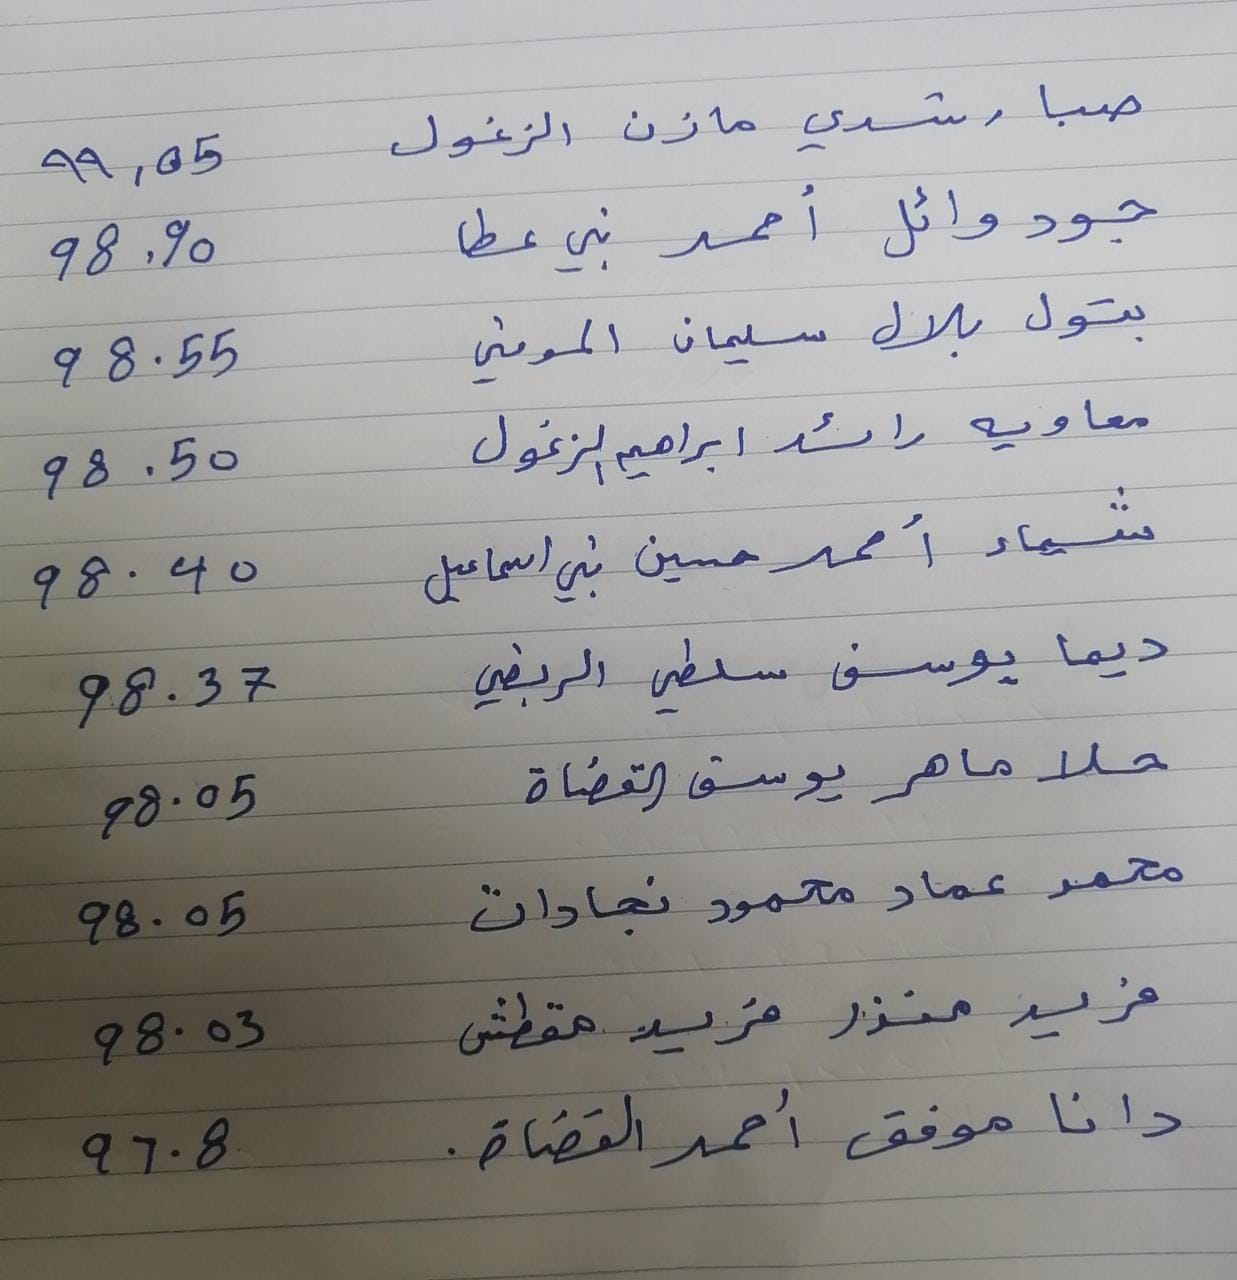 صبا رشدي مازن الزغول 99,05
جود وائل أحمد بني عطا 98.90
بتول بلال سليمان المومني 98.55
معاويه رائد ابراهيم الزغول 98.50
شيماء أحمد حسين بني اسماعيل 98.40
ديما يوسف سلطي الربضي 98.37
حلا ماهر يوسف القضاة 98.05
محمد عماد محمود نجادات 98.05
مزيد منذر مزيد مقطش 98.03
دانا موفق أحمد القضاة. 97.8